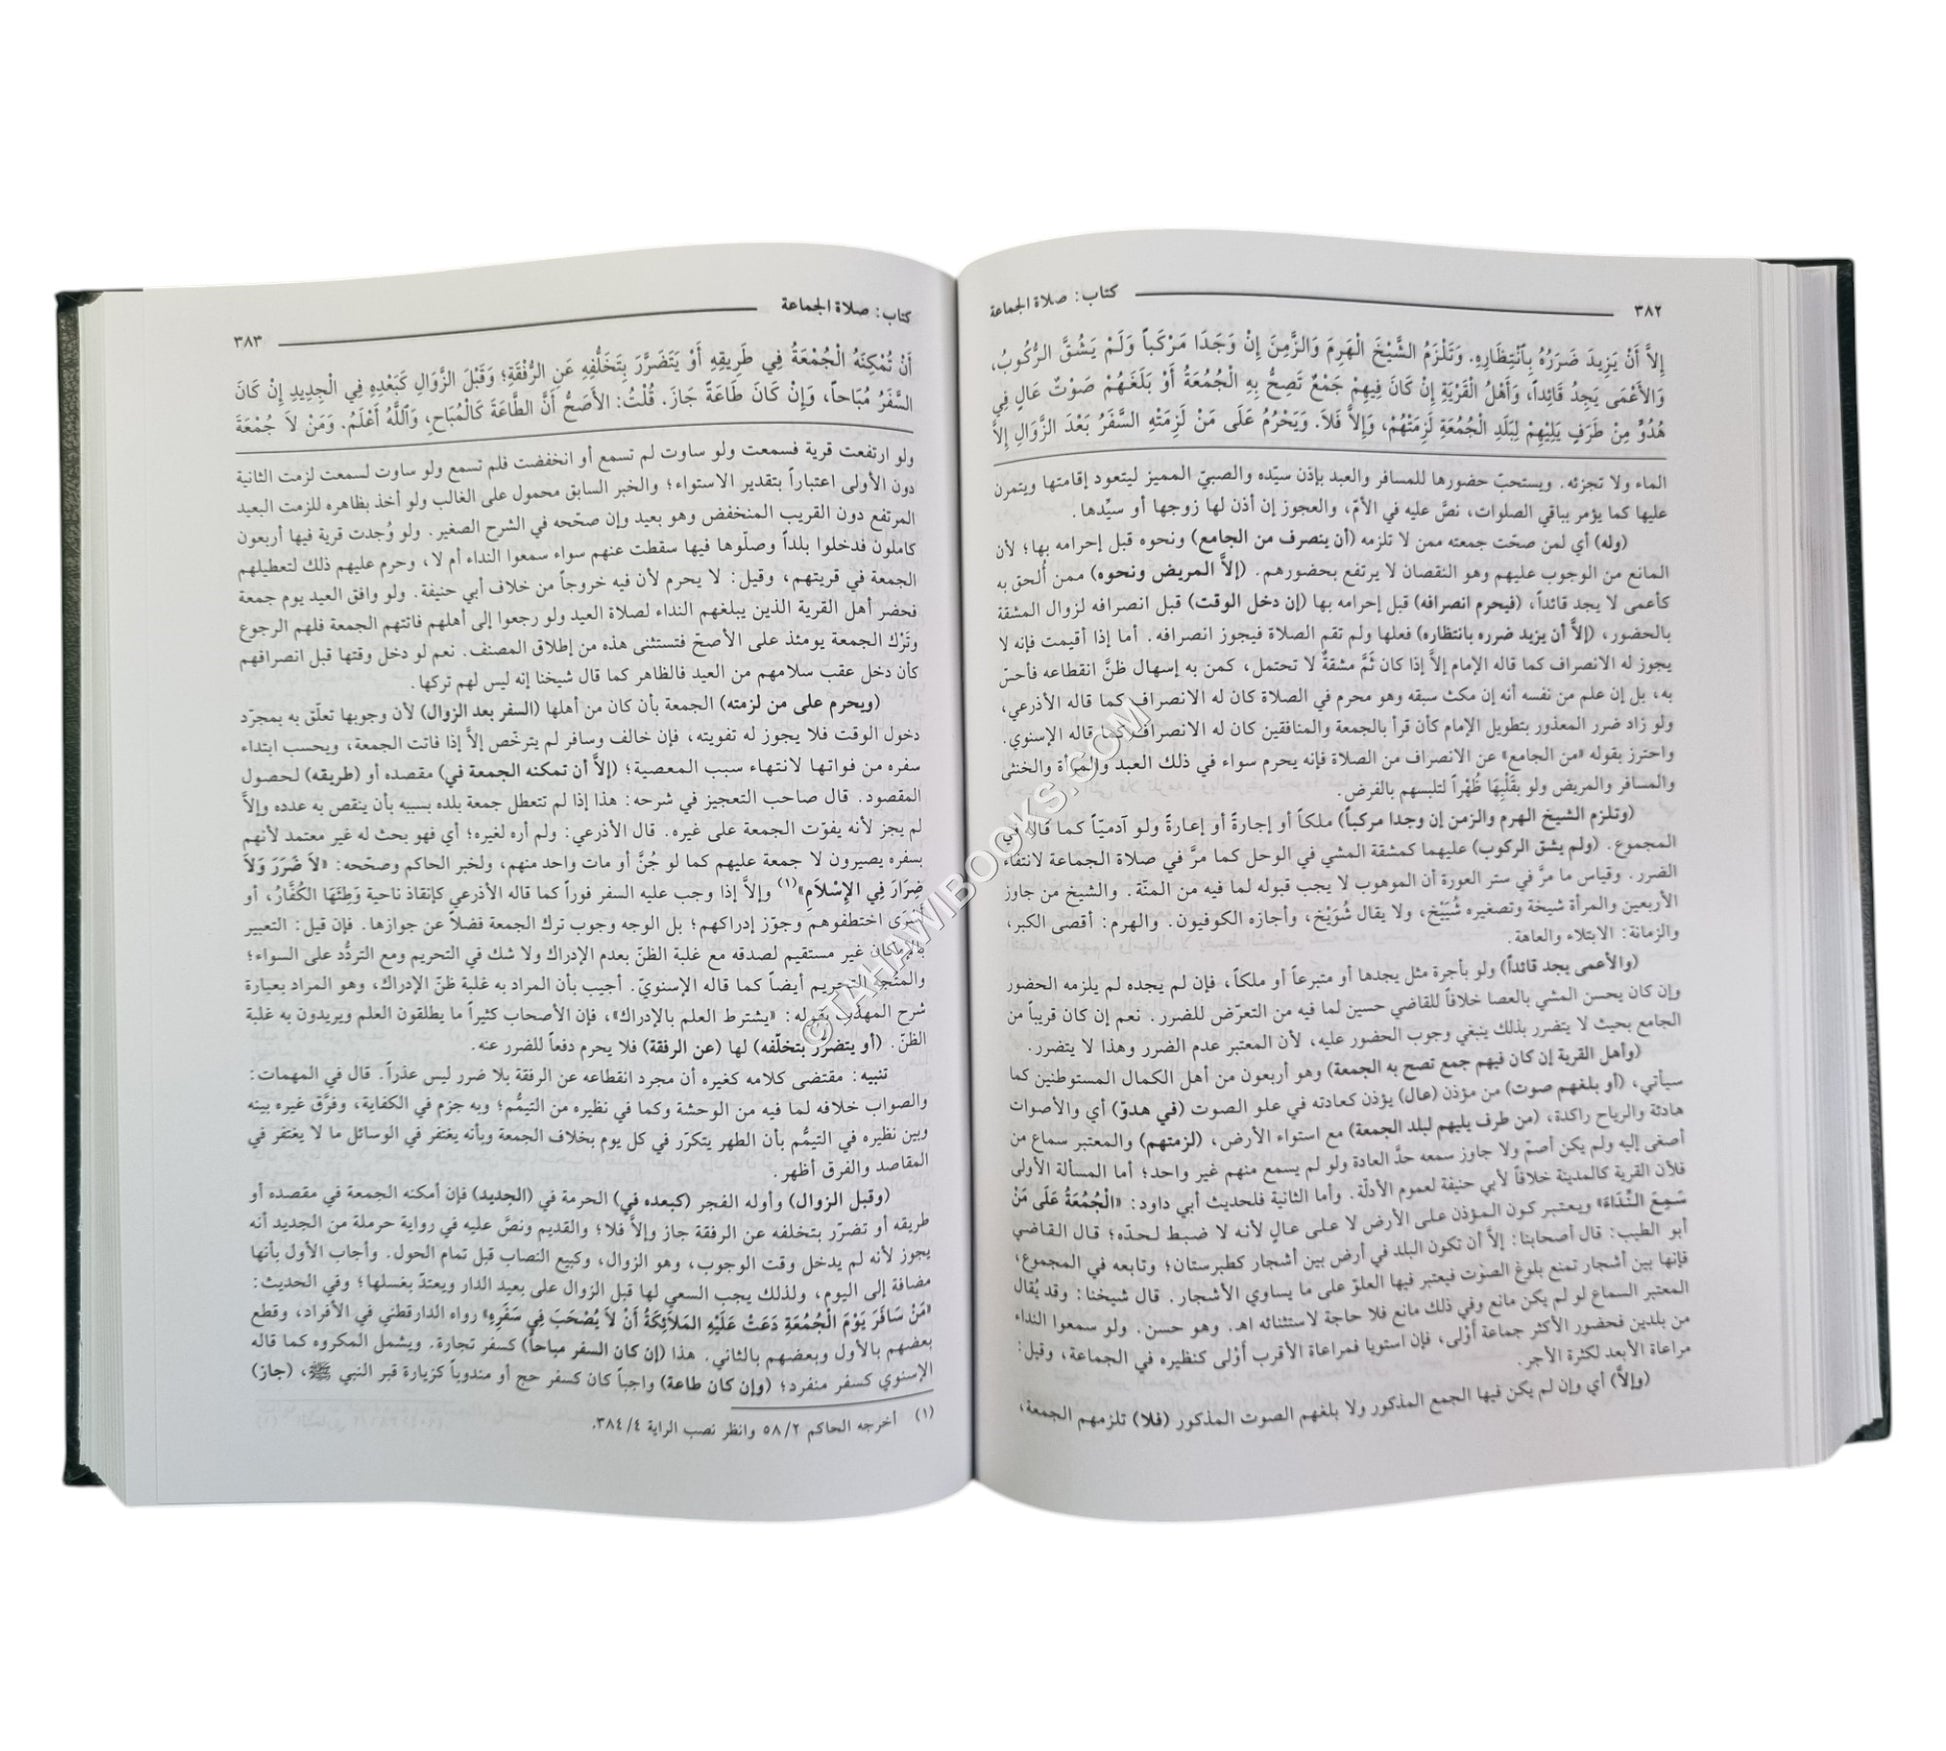 ٣٨٢ كتاب: صلاة الجماعة
إلاَّ أَنْ يَزِيدَ ضَرَرُهُ بِٱنْتِظَارِهِ. وَتَلْزَمُ الشَّيْخَ الْهَرِمَ وَالزَّمِنَ إِنْ وَجَدَا مَرْكَباً وَلَمْ يَشُقَّ الرُّكُوبُ،
وَالأَعْمَى يَجِدُ قَائِداً، وَأَهْلُ الْقَرْيَةِ إِنْ كَانَ فِيهِمْ جَمْعٌ تَصِحُّ بِهِ الْجُمُعَةُ أَوْ بَلَغَهُمْ صَوْتٌ عَالٍ فِي
هُدُوٍّ مِنْ طَرَفٍ يَلِيهِمْ لِبَلَدِ الْجُمُعَةِ لَزِمَتْهُمْ، وَإِلاَّ فَلاَ. وَيَحْرُمُ عَلَى مَنْ لَزِمَتْهُ السَّفَرُ بَعْدَ الزَّوَالِ إلاَّ
الماء ولا تجزئه. ويستحبّ حضورها للمسافر والعبد بإذن سيّده والصبيّ المميز ليتعود إقامتها ويتمرن
عليها كما يؤمر بباقي الصلوات، نصَّ عليه في الأمّ، والعجوز إن أذن لها زوجها أو سيِّدها.
(وله) أي لمن صحّت جمعته ممن لا تلزمه (أن ينصرف من الجامع) ونحوه قبل إحرامه بها؛ لأن
المانع من الوجوب عليهم وهو النقصان لا يرتفع بحضورهم. (إلاَّ المريض ونحوه) ممن أُلحق به
كأعمى لا يجد قائداً، (فيحرم انصرافه) قبل إحرامه بها (إن دخل الوقت) قبل انصرافه لزوال المشقة
بالحضور، (إلاَّ أن يزيد ضرره بانتظاره) فعلها ولم تقم الصلاة فيجوز انصرافه. أما إذا أقيمت فإنه لا
يجوز له الانصراف كما قاله الإمام إلاَّ إذا كان ثَمَّ مشقةٌ لا تحتمل، كمن به إسهال ظنَّ انقطاعه فأحسّ
به، بل إن علم من نفسه أنه إن مكث سبقه وهو محرم في الصلاة كان له الانصراف كما قاله الأذرعي،
ولو زاد ضرر المعذور بتطويل الإمام كأن قرأ بالجمعة والمنافقين كان له الانصراف كما قاله الإسنوي.
واحترز بقوله «من الجامع» عن الانصراف من الصلاة فإنه يحرم سواء في ذلك العبد والمرأة والخنثى
والمسافر والمريض ولو بقَلْبِهَا ظُهْراً لتلبسهم بالفرض.
(وتلزم الشيخ الهرم والزمن إن وجدا مركباً) ملكاً أو إجارةً أو إعارةً ولو آدميّاً كما قاله في
المجموع. (ولم يشق الركوب) عليهما كمشقة المشي في الوحل كما مرَّ في صلاة الجماعة لانتفاء
الضرر. وقياس ما مرَّ في ستر العورة أن الموهوب لا يجب قبوله لما فيه من المنّة. والشيخ من جاوز
الأربعين والمرأة شيخة وتصغيره شُيَيْخ، ولا يقال شُوَيْخ، وأجازه الكوفيون. والهرم: أقصى الكبر،
والزمانة: الابتلاء والعاهة.
(والأعمى يجد قائداً) ولو بأجرة مثل يجدها أو متبرعاً أو ملكاً، فإن لم يجده لم يلزمه الحضور
وإن كان يحسن المشي بالعصا خلافاً للقاضي حسين لما فيه من التعرّض للضرر. نعم إن كان قريباً من
الجامع بحيث لا يتضرر بذلك ينبغي وجوب الحضور عليه، لأن المعتبر عدم الضرر وهذا لا يتضرر.
(وأهل القرية إن كان فيهم جمع تصح به الجمعة) وهو أربعون من أهل الكمال المستوطنين كما
سيأتي، (أو بلغهم صوت) من مؤذن (عال) يؤذن كعادته في علو الصوت (في هدوّ) أي والأصوات
هادئة والرياح راكدة، (من طرف يليهم لبلد الجمعة) مع استواء الأرض، (لزمتهم) والمعتبر سماع من
أصغى إليه ولم يكن أصمّ ولا جاوز سمعه حدَّ العادة ولو لم يسمع منهم غير واحد؛ أما المسألة الأولى
فلأن القرية كالمدينة خلافاً لأبي حنيفة لعموم الأدلّة. وأما الثانية فلحديث أبي داود: «الْجُمُعَةُ عَلَى مَنْ
سَمِعَ النِّدَاءَ» ويعتبر كون المؤذن على الأرض لا على عالٍ لأنه لا ضبط لحدّه؛ قال القاضي
أبو الطيب: قال أصحابنا: إلاَّ أن تكون البلد في أرض بين أشجار كطبرستان؛ وتابعه في المجموع،
فإنها بين أشجار تمنع بلوغ الصوت فيعتبر فيها العلوّ على ما يساوي الأشجار. قال شيخنا: وقد يُقال
المعتبر السماع لو لم يكن مانع وفي ذلك مانع فلا حاجة لاستثنائه اهـ. وهو حسن. ولو سمعوا النداء
من بلدين فحضور الأكثر جماعة أوْلى، فإن استويا فمراعاة الأقرب أوْلى كنظيره في الجماعة، وقيل:
مراعاة الأبعد لكثرة الأجر.
(وإلاَّ) أي وإن لم يكن فيها الجمع المذكور ولا بلغهم الصوت المذكور (فلا) تلزمهم الجمعة،
كتاب: صلاة الجماعة ٣٨٣
أَنْ تُمْكِنَهُ الْجُمْعَةُ فِي طَرِيقِهِ أَوْ يَتَضَرَّرَ بِتَخَلُّفِهِ عَنِ الرُّفْقَةِ؛ وَقَبْلَ الزَّوَالِ كَبَعْدِهِ فِي الْجِدِيدِ إِن كَانَ
السَّفَرُ مُبَاحاً، وَإِنْ كَانَ طَاعَةً جَازَ. قُلْتُ: الأَصَحُّ أَنَّ الطَّاعَةَ كَالْمُبَاحِ، وَٱللَّهُ أَعْلَمُ. وَمَنْ لاَ جُمْعَةَ
ولو ارتفعت قرية فسمعت ولو ساوت لم تسمع أو انخفضت فلم تسمع ولو ساوت لسمعت لزمت الثانية
دون الأولى اعتباراً بتقدير الاستواء؛ والخبر السابق محمول على الغالب ولو أخذ بظاهره للزمت البعيد
المرتفع دون القريب المنخفض وهو بعيد وإن صحّحه في الشرح الصغير. ولو وُجدت قرية فيها أربعون
كاملون فدخلوا بلداً وصلّوها فيها سقطت عنهم سواء سمعوا النداء أم لا، وحرم عليهم ذلك لتعطيلهم
الجمعة في قريتهم، وقيل: لا يحرم لأن فيه خروجاً من خلاف أبي حنيفة. ولو وافق العيد يوم جمعة
فحضر أهل القرية الذين يبلغهم النداء لصلاة العيد ولو رجعوا إلى أهلهم فاتتهم الجمعة فلهم الرجوع
وتَرْك الجمعة يومئذ على الأصحّ فتستثنى هذه من إطلاق المصنف. نعم لو دخل وقتها قبل انصرافهم
كأن دخل عقب سلامهم من العيد فالظاهر كما قال شيخنا إنه ليس لهم تركها.
(ويحرم على من لزمته) الجمعة بأن كان من أهلها (السفر بعد الزوال) لأن وجوبها تعلّق به بمجرّد
دخول الوقت فلا يجوز له تفويته، فإن خالف وسافر لم يترخّص إلاَّ إذا فاتت الجمعة، ويحسب ابتداء
سفره من فواتها لانتهاء سبب المعصية؛ (إلاَّ أن تمكنه الجمعة في) مقصده أو (طريقه) لحصول
المقصود. قال صاحب التعجيز في شرحه: هذا إذا لم تتعطل جمعة بلده بسببه بأن ينقص به عدده وإلاَّ
لم يجز لأنه يفوّت الجمعة على غيره. قال الأذرعي: ولم أره لغيره؛ أي فهو بحث له غير معتمد لأنهم
بسفره يصيرون لا جمعة عليهم كما لو جُنَّ أو مات واحد منهم، ولخبر الحاكم وصحّحه: «لاَ ضَرَرَ وَلاَ
ضِرَارَ فِي الإسْلاَمِ»(١) وإلاَّ إذا وجب عليه السفر فوراً كما قاله الأذرعي كإنقاذ ناحية وَطِئَهَا الكُفَّارُ، أو
أسْرَى اختطفوهم وجوّز إدراكهم؛ بل الوجه وجوب ترك الجمعة فضلاً عن جوازها. فإن قيل: التعبير
بالإمكان غير مستقيم لصدقه مع غلبة الظنّ بعدم الإدراك ولا شك في التحريم ومع التردُّد على السواء؛
والمتَّجه التحريم أيضاً كما قاله الإسنويّ. أجيب بأن المراد به غلبة ظنّ الإدراك، وهو المراد بعبارة
شرح المهذّب بقوله: «يشترط العلم بالإدراك»، فإن الأصحاب كثيراً ما يطلقون العلم ويريدون به غلبة
الظنّ. (أو يتضرّر بتخلّفه) لها (عن الرفقة) فلا يحرم دفعاً للضرر عنه.
تنبيه: مقتضى كلامه كغيره أن مجرد انقطاعه عن الرفقة بلا ضرر ليس عذراً. قال في المهمات:
والصواب خلافه لما فيه من الوحشة وكما في نظيره من التيمُّم؛ وبه جزم في الكفاية، وفرَّق غيره بينه
وبين نظيره في التيمُّم بأن الطهر يتكرّر في كل يوم بخلاف الجمعة وبأنه يغتفر في الوسائل ما لا يغتفر في
المقاصد والفرق أظهر.
(وقبل الزوال) وأوله الفجر (كبعده في) الحرمة في (الجديد) فإن أمكنه الجمعة في مقصده أو
طريقه أو تضرّر بتخلفه عن الرفقة جاز وإلاَّ فلا؛ والقديم ونصَّ عليه في رواية حرملة من الجديد أنه
يجوز لأنه لم يدخل وقت الوجوب، وهو الزوال، وكبيع النصاب قبل تمام الحول. وأجاب الأول بأنها
مضافة إلى اليوم، ولذلك يجب السعي لها قبل الزوال على بعيد الدار ويعتدّ بغسلها؛ وفي الحديث:
«مَنْ سَافَرَ يَوْمَ الْجُمُعَةِ دَعَتْ عَلَيْهِ المَلاَئِكَةُ أَنْ لاَ يُصْحَبَ فِي سَفَرِهِ» رواه الدارقطني في الأفراد، وقطع
بعضهم بالأول وبعضهم بالثاني. هذا (إن كان السفر مباحاً) كسفر تجارة. ويشمل المكروه كما قاله
الإسنوي كسفر منفرد؛ (وإن كان طاعة) واجباً كان كسفر حج أو مندوباً كزيارة قبر النبي ﷺ، (جاز)
(١) أخرجه الحاكم ٥٨/٢ وانظر نصب الراية ٣٨٤/٤.
©TAHAWIBOOKS.COM